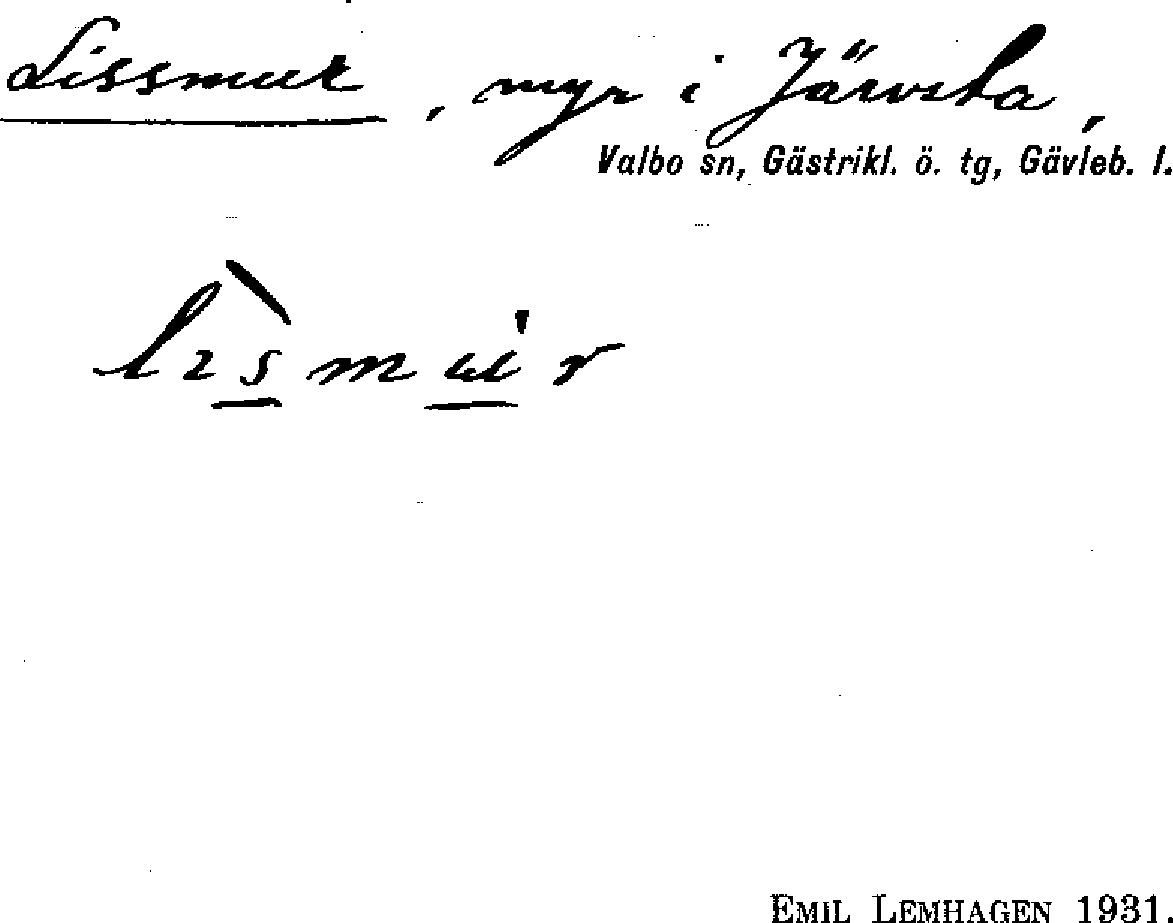 Lissmur, myr i Järvsta,
Valbo sn, Gästrikl. ö. tg, Gävleb. l.
EMIL LEMHAGEN 1931.